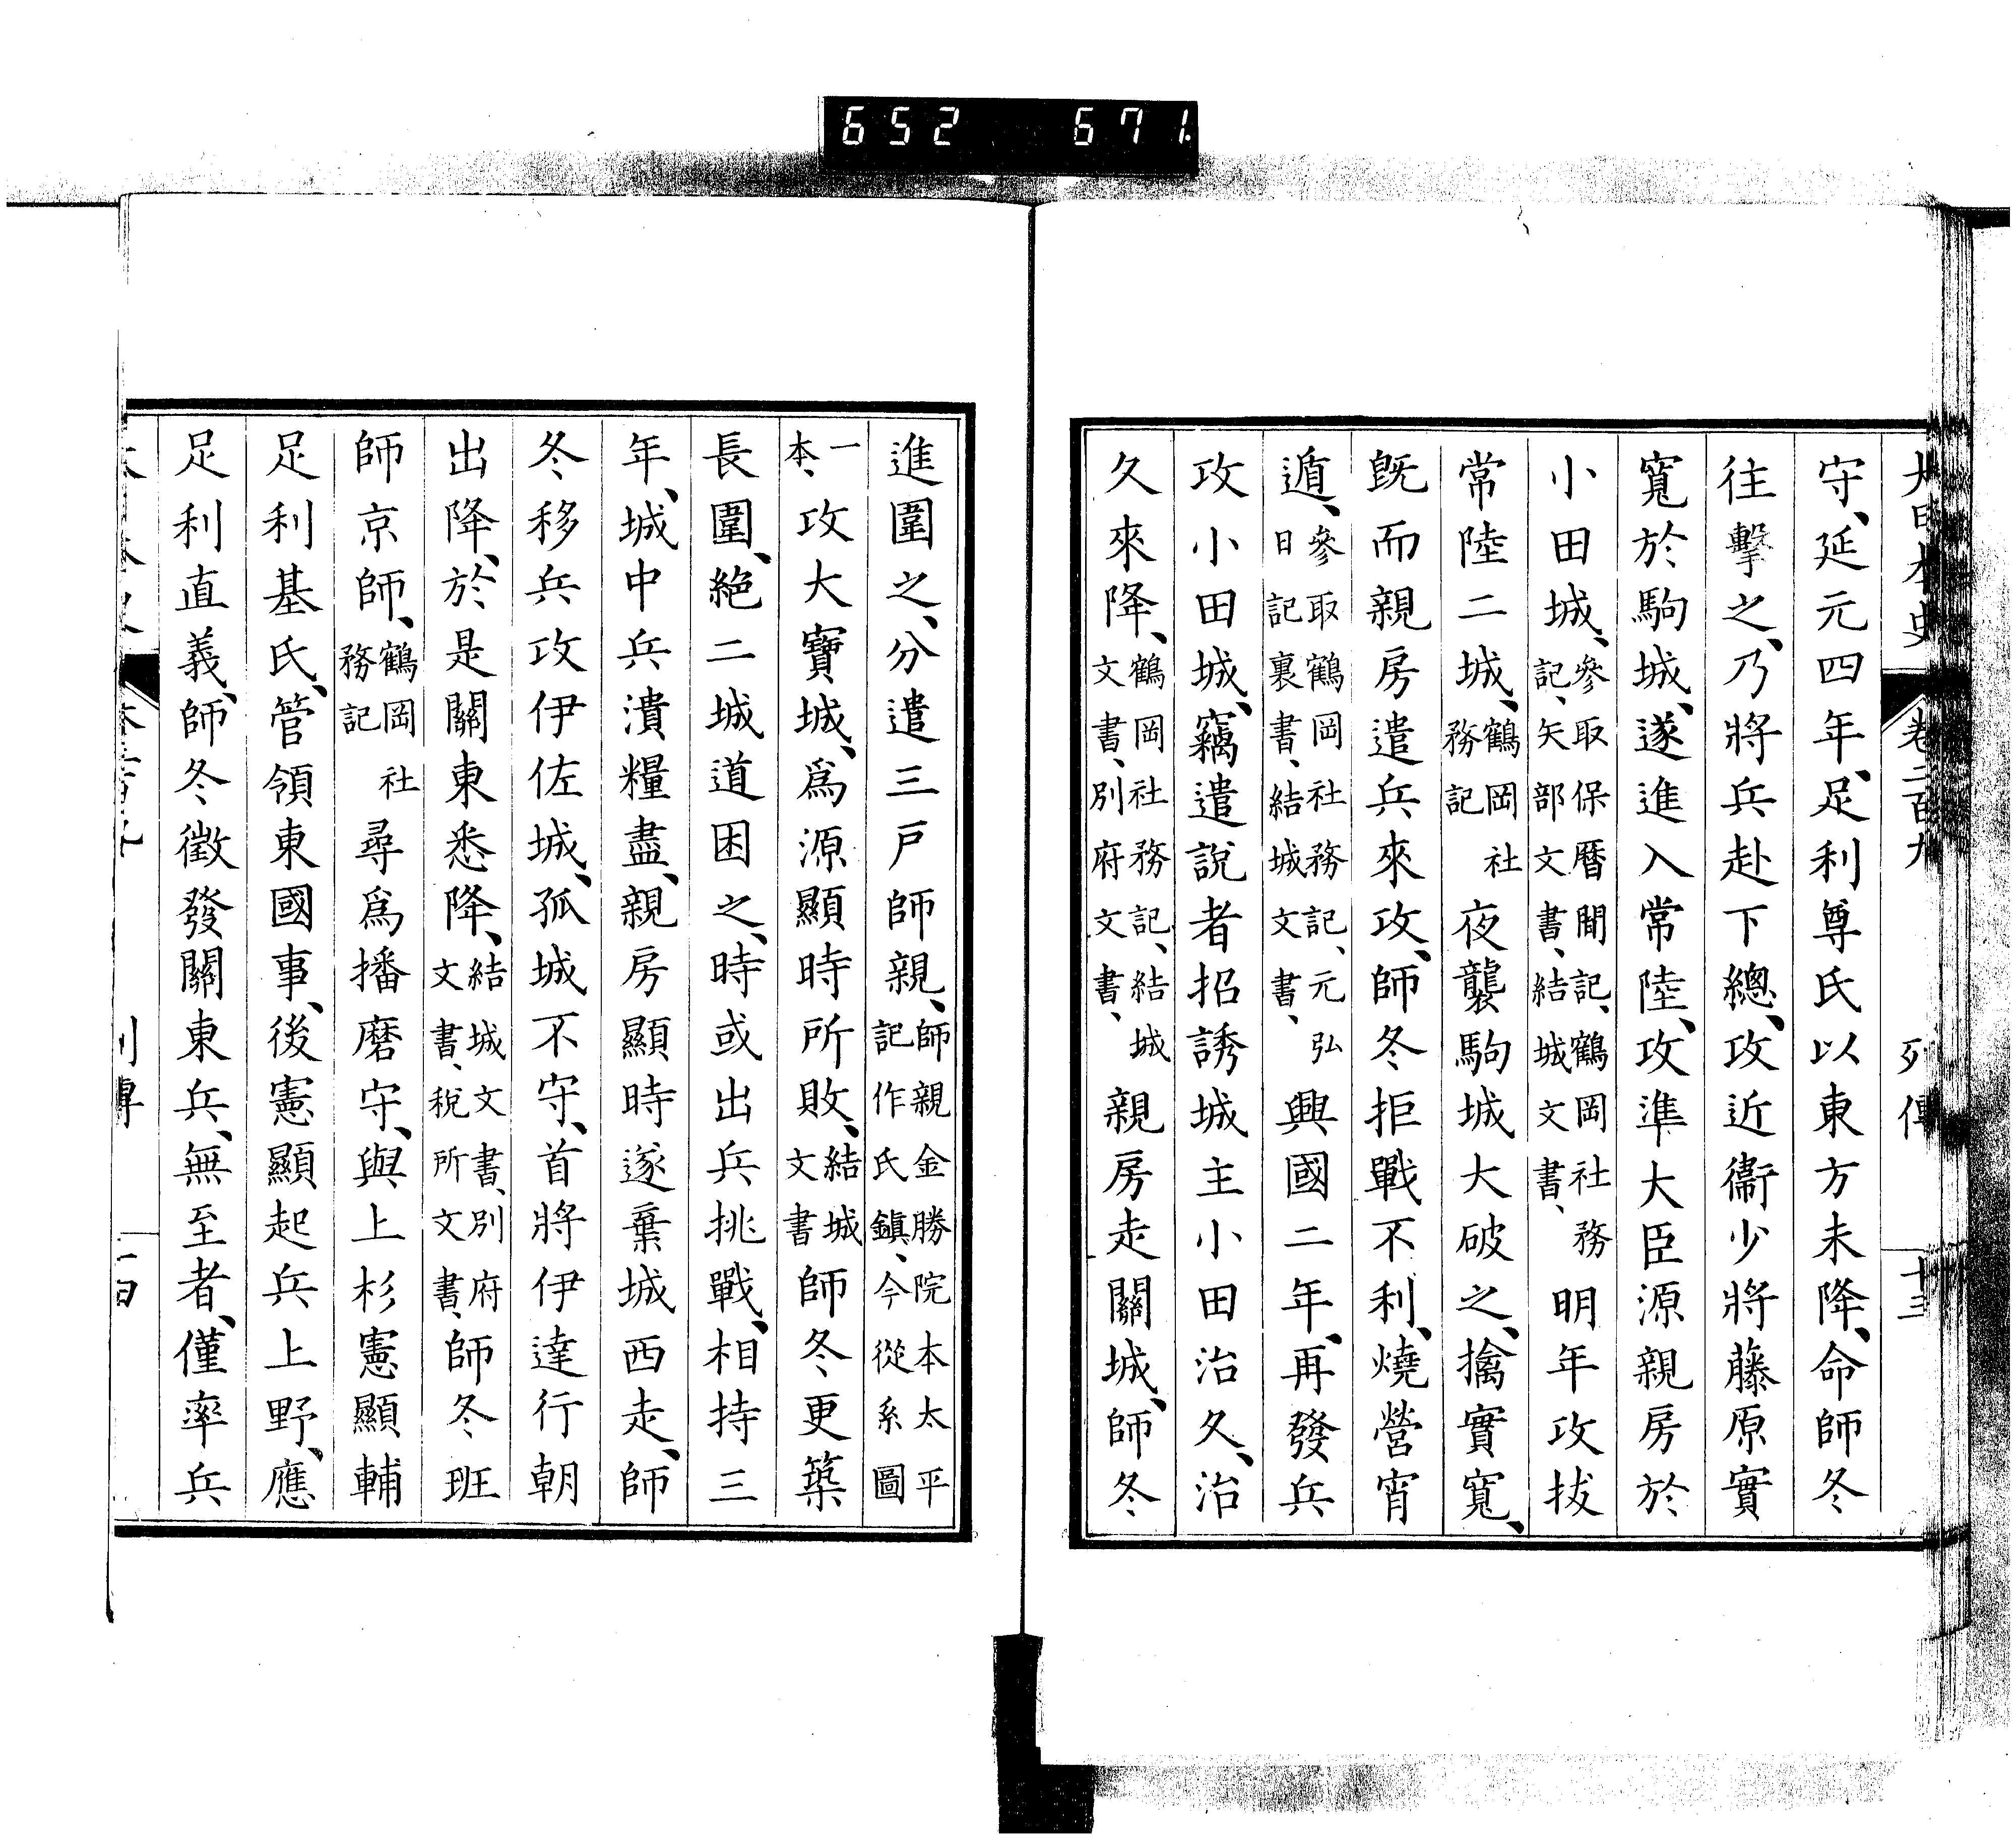 652 671.
大日本史 卷二百九 列傳 十三
守、延元四年、足利尊氏以東方未降、命師冬
往擊之、乃將兵赴下總、攻近衞少將藤原實
寬於駒城、遂進入常陸、攻準大臣源親房於
小田城、參取保曆間記、鶴岡社務記、矢部文書、結城文書、明年攻拔
常陸二城、鶴岡社務記夜襲駒城大破之、擒實寬、
既而親房遣兵來攻、師冬拒戰不利、燒營宵
遁、參取鶴岡社務記、元弘日記裏書、結城文書、興國二年、再發兵
攻小田城、竊遣說者招誘城主小田治久、治
久來降、鶴岡社務記、結城文書、別府文書、親房走關城、師冬
進圍之、分遣三戶師親、師親金勝院本太平記作氏鎭、今從系圖
一本、攻大寶城、爲源顯時所敗、結城文書師冬更築
長圍、絕二城道困之、時或出兵挑戰、相持三
年、城中兵潰糧盡、親房顯時遂棄城西走、師
冬移兵攻伊佐城、孤城不守、首將伊達行朝
出降、於是關東悉降、結城文書、別府文書、稅所文書、師冬班
師京師、鶴岡社務記尋爲播磨守、與上杉憲顯輔
足利基氏、管領東國事、後憲顯起兵上野、應
足利直義、師冬徵發關東兵、無至者、僅率兵
列傳